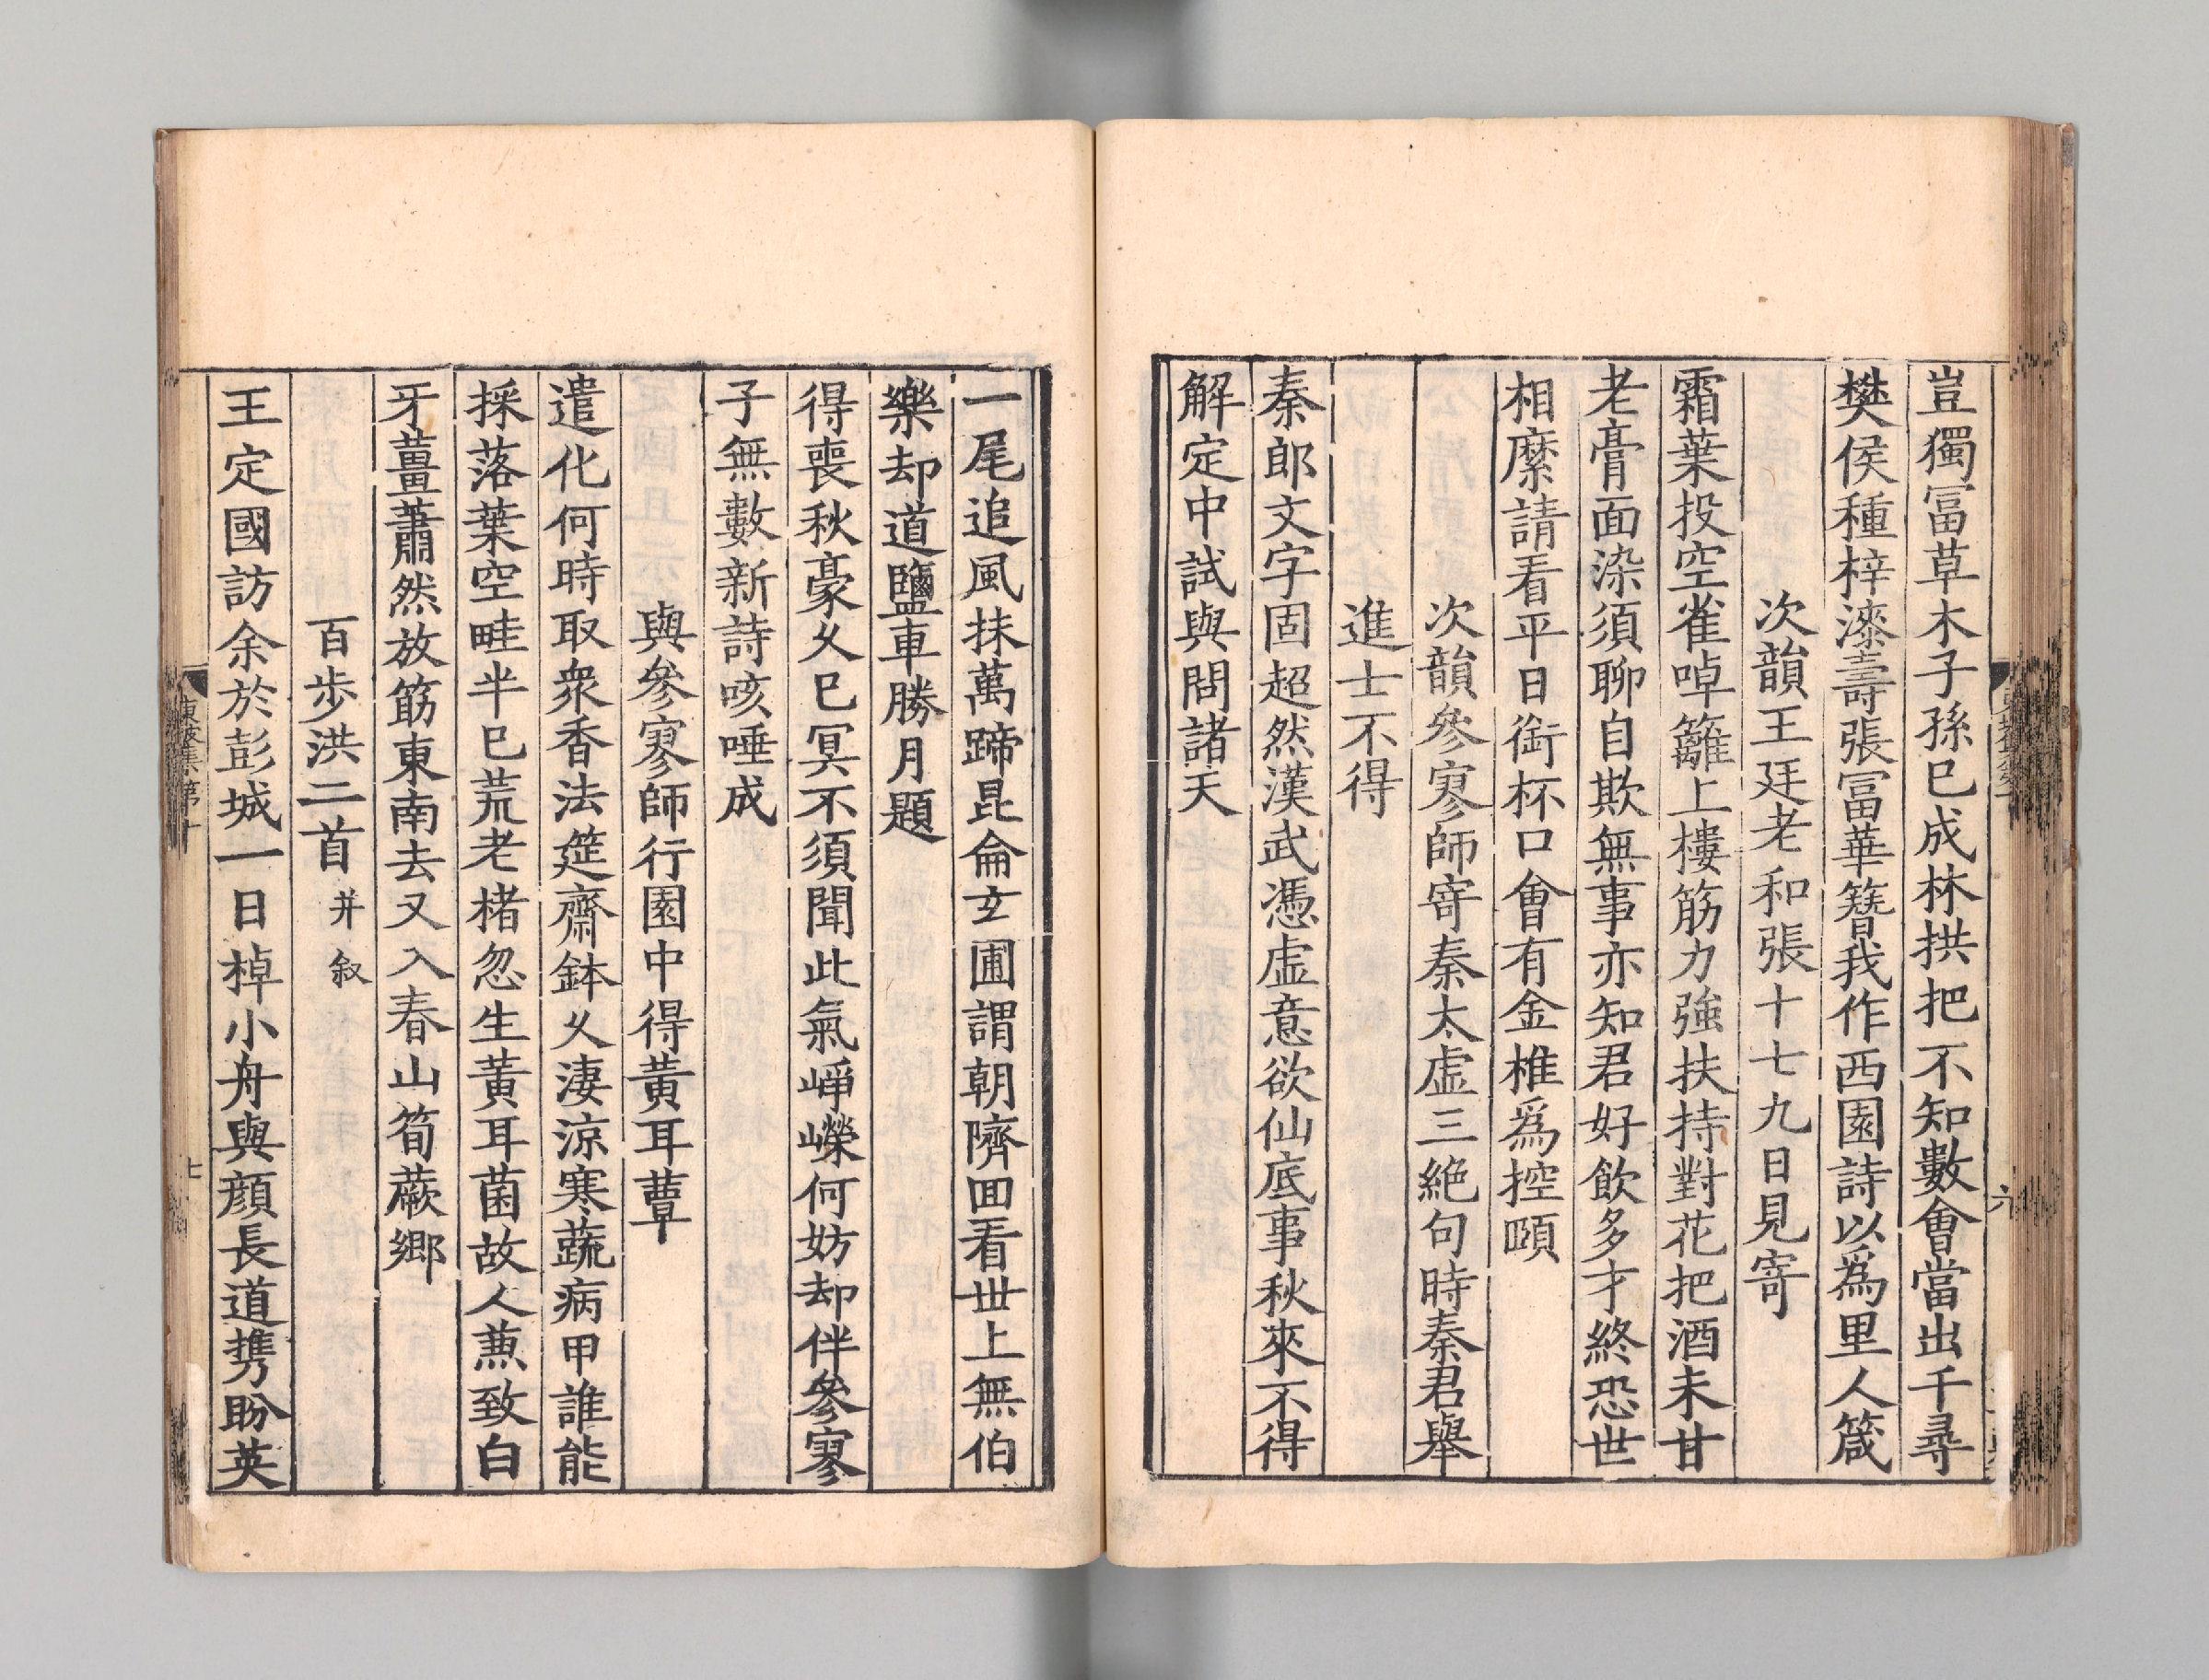 豈獨冨草木子孫已成林拱把不知數會當出千尋
樊侯種梓漆壽張冨華簪我作西園詩以爲里人箴
次韻王廷老和張十七九日見寄
霜葉投空雀啅籬上樓筋力強扶持對花把酒未甘
老膏面染須聊自欺無事亦知君好飲多才終恐世
相縻請看平日銜杯口會有金椎爲控頤
次韻參寥師寄秦太虛三絶句時秦君舉
進士不得
秦郎文字固超然漢武憑虛意欲仙底事秋來不得
解定中試與問諸天
一尾追風抹萬蹄昆侖玄圃謂朝隮囬看世上無伯
樂却道鹽車勝月題
得喪秋豪久已冥不須聞此氣崢嶸何妨却伴參寥
子無數新詩咳唾成
與參寥師行園中得黃耳蕈
遣化何時取衆香法筵齋鉢久淒涼寒蔬病甲誰能
採落葉空畦半已荒老楮忽生黃耳菌故人兼致白
牙薑蕭然放筯東南去又入春山筍蕨鄉
百步洪二首 并叙
王定國訪余於彭城一日棹小舟與顏長道攜盼英
東坡集第十
七
六